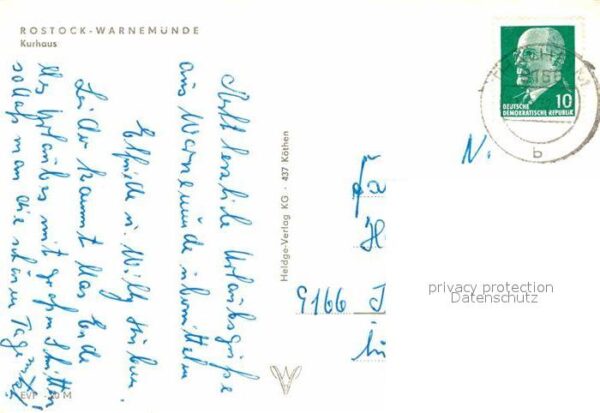 ROSTOCK-WARNEMÜNDE
Kurhaus
Recht herzliche Urlaubsgrüße
aus Warnemünde übermitteln
Elfriede u. Willy
Leider kommt das Ende
des Urlaubes mit großen Schritten
so daß man die schönen Tage
EVP
M
Heldge-Verlag KG · 437 Köthen
10
DEUTSCHE
DEMOKRATISCHE REPUBLIK
b
N.
H
9166 J
privacy protection
Datenschutz